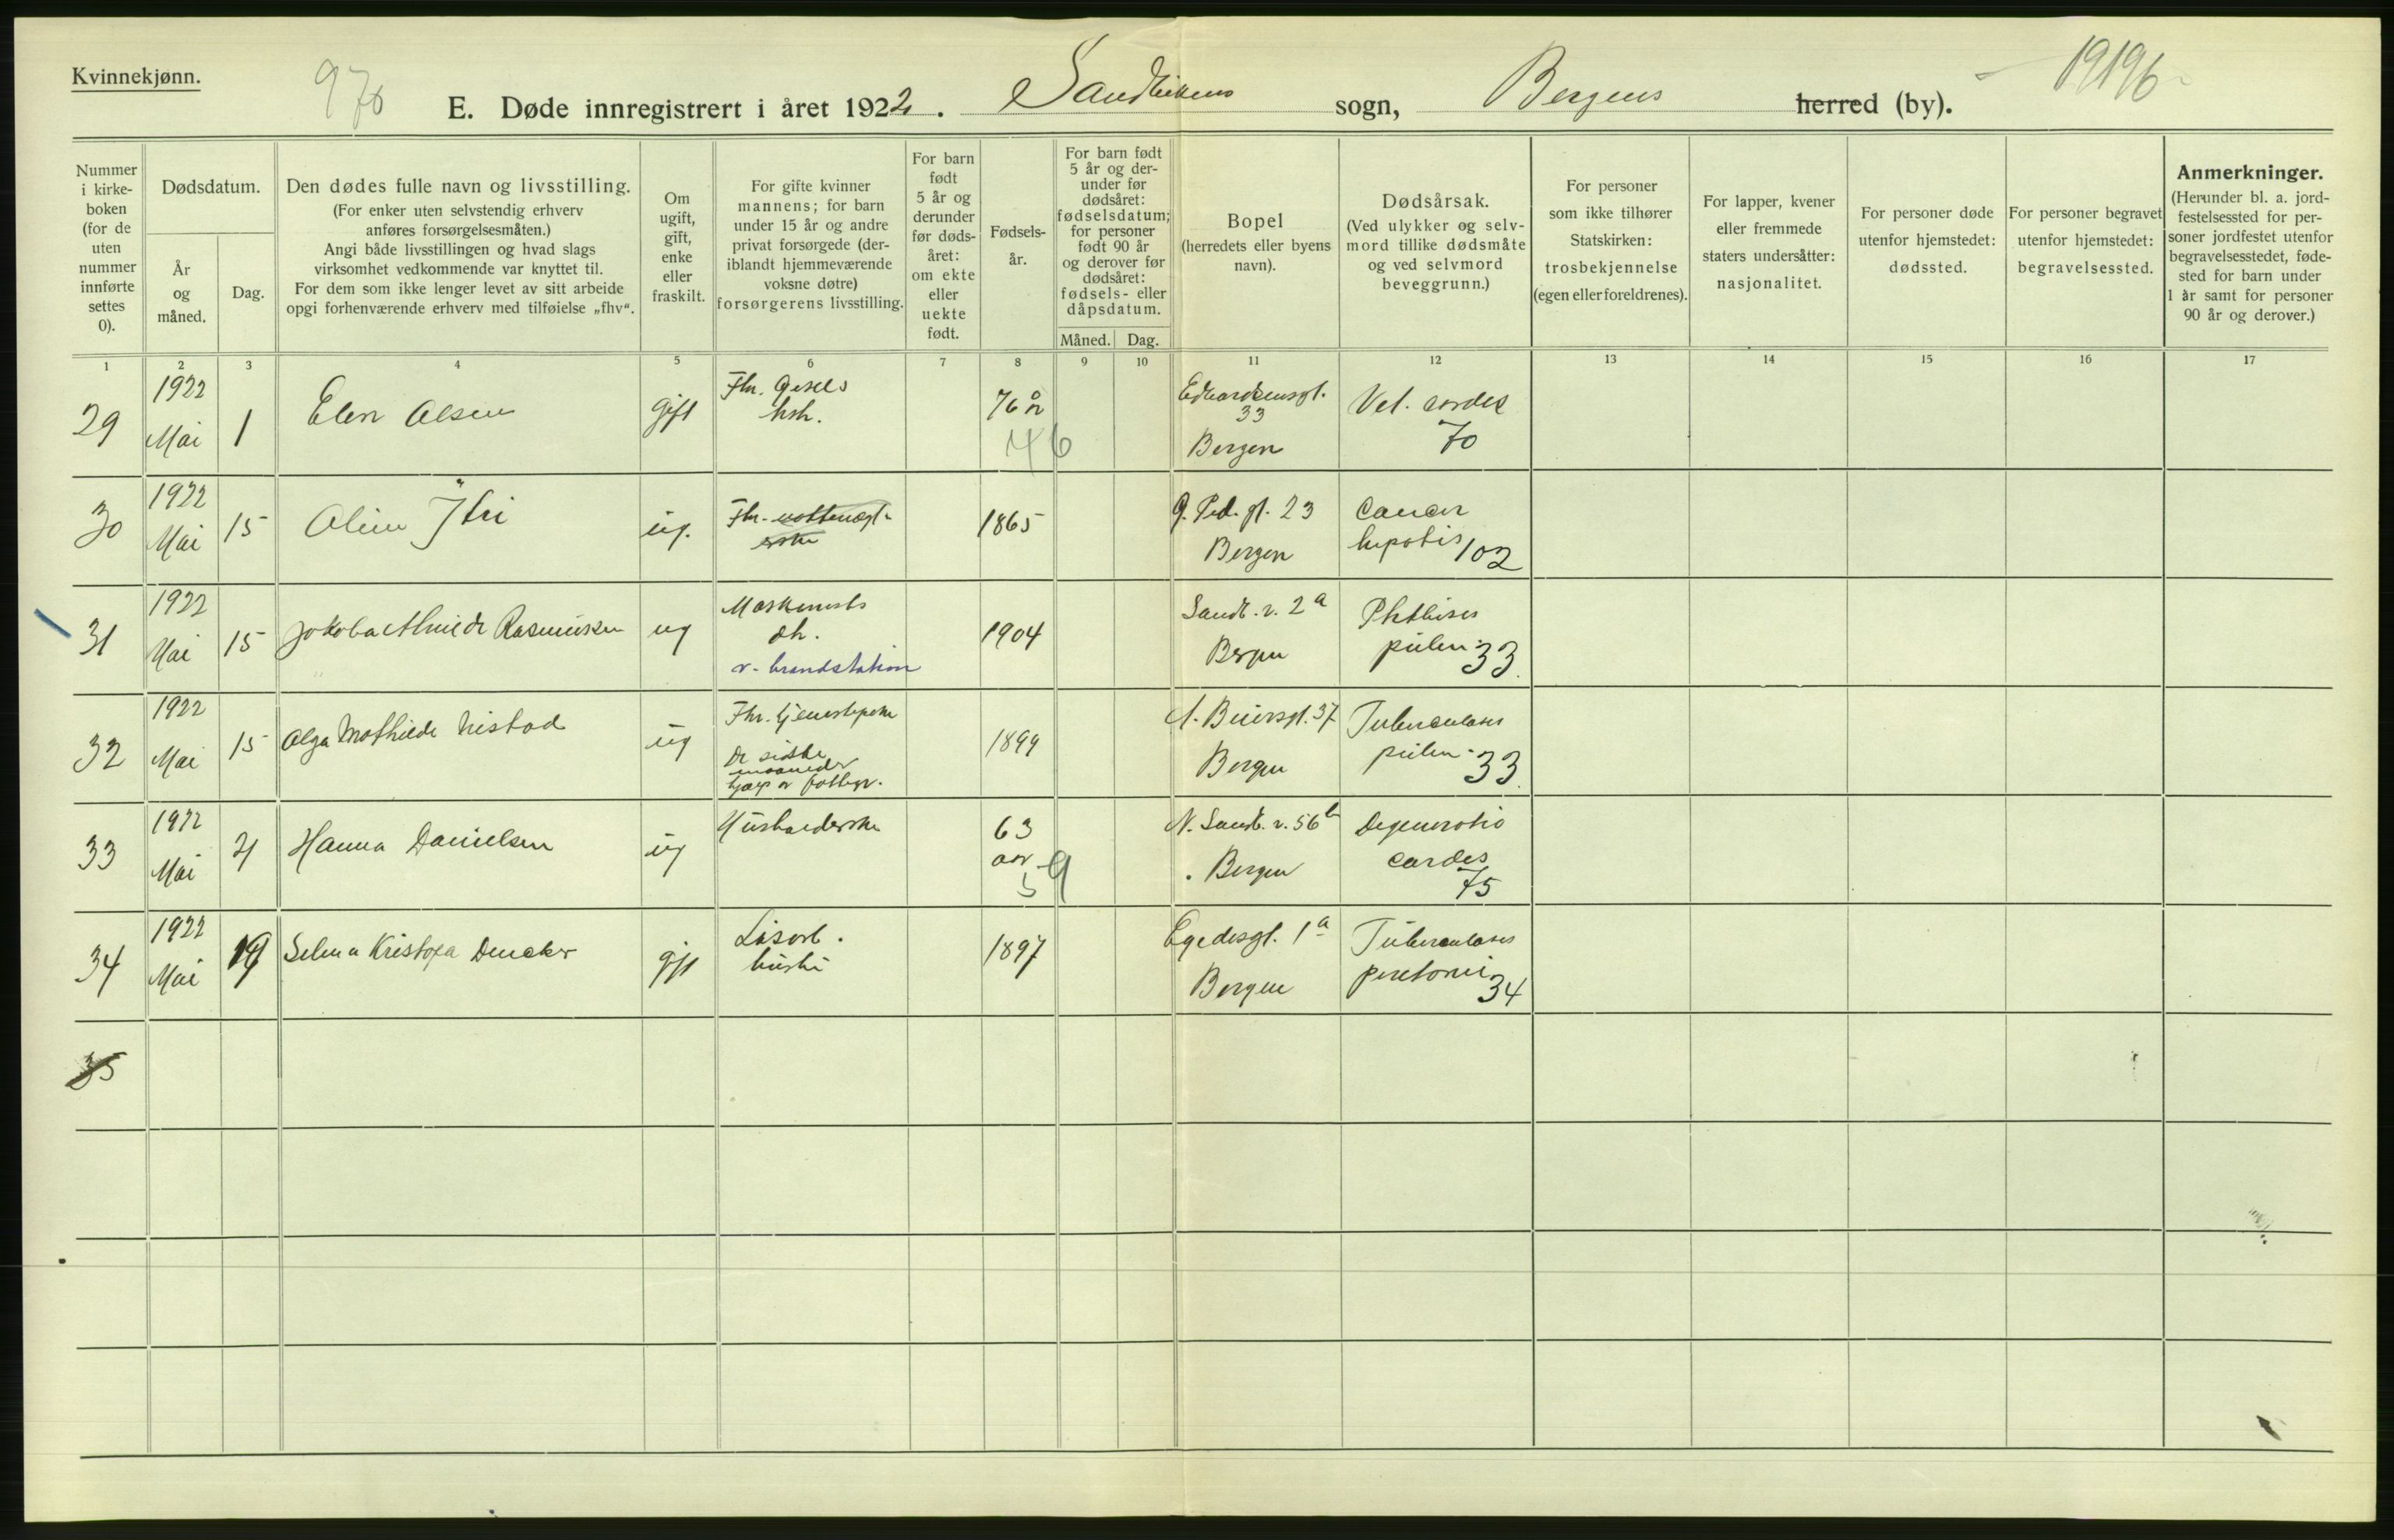 Kvinnekjønn.
970
E. Døde innregistrert i året 1922. Sandvikens sogn, Bergens herred (by).
19196
Nummer i kirke- boken (for de uten nummer innførte settes 0).
Dødsdatum.
År og måned.
Dag.
Den dødes fulle navn og livsstilling.
(For enker uten selvstendig erhverv anføres forsørgelsesmåten.)
Angi både livsstillingen og hvad slags virksomhet vedkommende var knyttet til.
For dem som ikke lenger levet av sitt arbeide opgi forhenværende erhverv med tilføielse „fhv“.
Om ugift, gift, enke eller fraskilt.
For gifte kvinner mannens; for barn under 15 år og andre privat forsørgede (der- iblandt hjemmeværende voksne døtre) forsørgerens livsstilling.
For barn født 5 år og derunder før døds- året: om ekte eller uekte født.
Fødsels- år.
For barn født 5 år og der- under før dødsåret: fødselsdatum; for personer født 90 år og derover før dødsåret: fødsels- eller dåpsdatum.
Måned. Dag.
Bopel
(herredets eller byens navn).
Dødsårsak.
(Ved ulykker og selv- mord tillike dødsmåte og ved selvmord beveggrunn.)
For personer som ikke tilhører Statskirken: trosbekjennelse (egen eller foreldrenes).
For lapper, kvener eller fremmede staters undersåtter: nasjonalitet.
For personer døde utenfor hjemstedet: dødssted.
For personer begravet utenfor hjemstedet: begravelsessted.
Anmerkninger.
(Herunder bl. a. jord- festelsessted for per- soner jordfestet utenfor begravelsesstedet, føde- sted for barn under 1 år samt for personer 90 år og derover.)
1 2 3 4 5 6 7 8 9 10 11 12 13 14 15 16 17
29 1922 Mai 1 Elen Olsen gift hsh. 76 46 33 Bergen Vet. cordis 70
30 1922 Mai 15 ug. 1865 23 Bergen Cancer hepatis 102
31 1922 Mai 15 Rasmussen ug Maskinists dh. v. brandstation 1904 Sandv. v. 2a Bergen Phthisis pulm 33
32 1922 Mai 15 Olga Mathilde Nistad ug De sidste maaneder 1899 37 Bergen Tuberculosis pulm 33
33 1922 Mai Hanna Danielsen ug Husholderske 63 aar 59 N. Sandv. v. 56b Bergen Degeneratio cordis 75
34 1922 Mai 19 Selma gift 1897 Egedesgt. 1a Bergen Tuberculosis peritonei 34
35